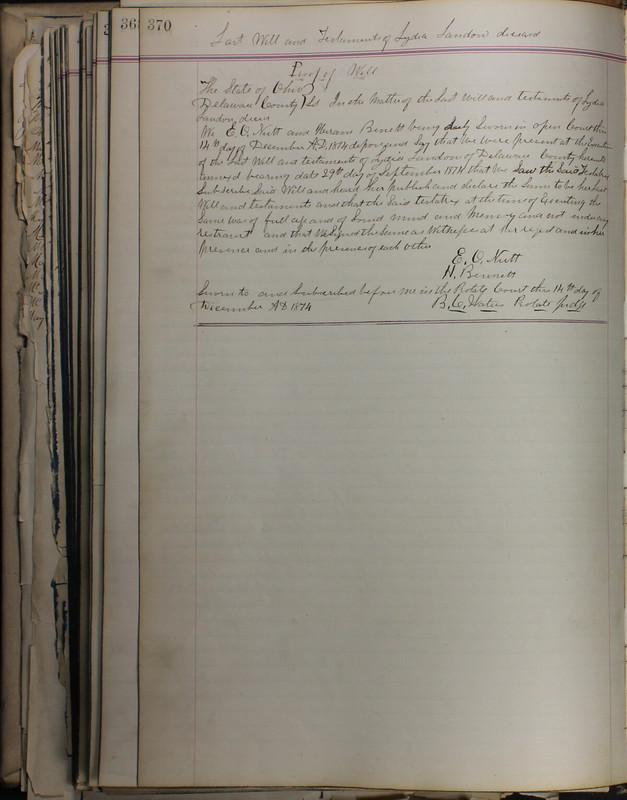 36
370
Last Will and Testament of Lydia Landon deceasd
Proof of Will
The State of Ohio
Delaware County } SS In the Matter of the Last Will and testiments of Lydia
Landon, deces
We E. O. Nutt and Hiram Benett being duly Sworn in open Court this
14th day of December A.D. 1874 depose and Say that we were present at the
of the Last Will and testaments of Lydia Landon of Delaware County hereunto
annexed bearing date 29th day of September 1874 that we Saw the Said Testatrix
Subscribe Said Will and heard her publish and declare the Same to be her last
Will and testament and that the Said testatrix at the time of Executing the
Same was of full age and of Sound mind and Memory and not under any
restraint and that We Signed the Same as Witnesses at her request and in her
presence and in the presence of each other
E. O. Nutt
H. Bennett
Sworn to and Subscribed before me in the Probate Court this 14th day of
December AD 1874 B. C. Waters Probate Judge